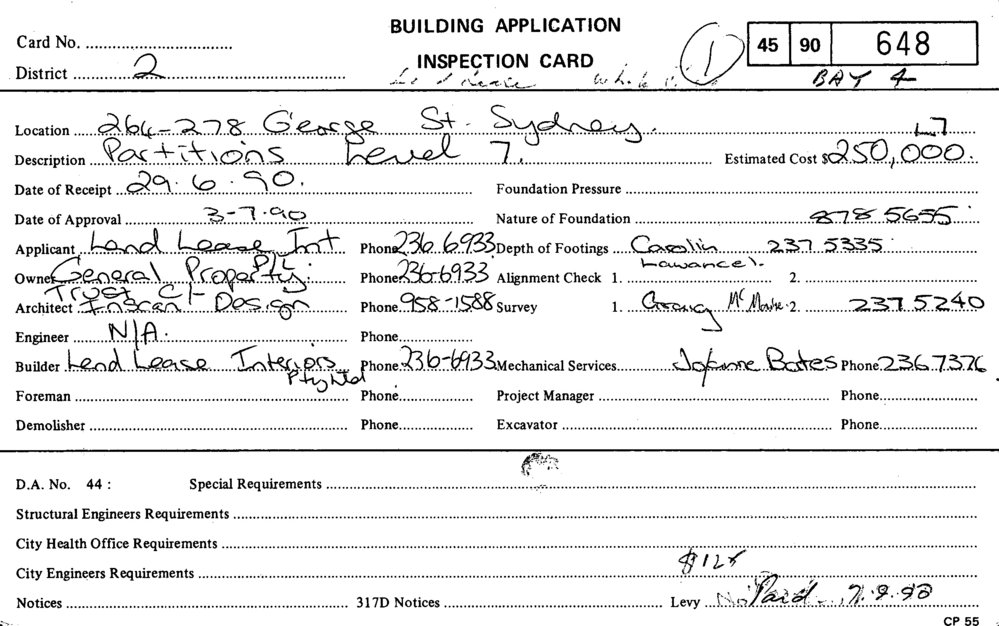 BUILDING APPLICATION
Card No. 45 90 648
INSPECTION CARD 1
District 2 BAY 4
Location 264-278 George St. Sydney.
L7
Description Partitions Level 7. Estimated Cost $250,000.
Date of Receipt 29.6.90. Foundation Pressure
Date of Approval 3-7-90 Nature of Foundation 878 5655
Applicant Lend Lease Int P/L Phone 236 6933 Depth of Footings Carolin 237 5335
Owner General Property Phone 236-6933 Alignment Check 1. 2.
Trust C/-
Architect Inscan Design Phone 958-1588 Survey 1. Craig 2. 237 5240
Engineer N/A. Phone
Builder Lend Lease Interiors Phone 236-6933 Mechanical Services Joanne Bates Phone 236 7376
Pty Ltd
Foreman Phone Project Manager Phone
Demolisher Phone Excavator Phone
D.A. No. 44 : Special Requirements
Structural Engineers Requirements
City Health Office Requirements
City Engineers Requirements $125
Notices 317D Notices Levy No Paid 7.9.90
CP 55